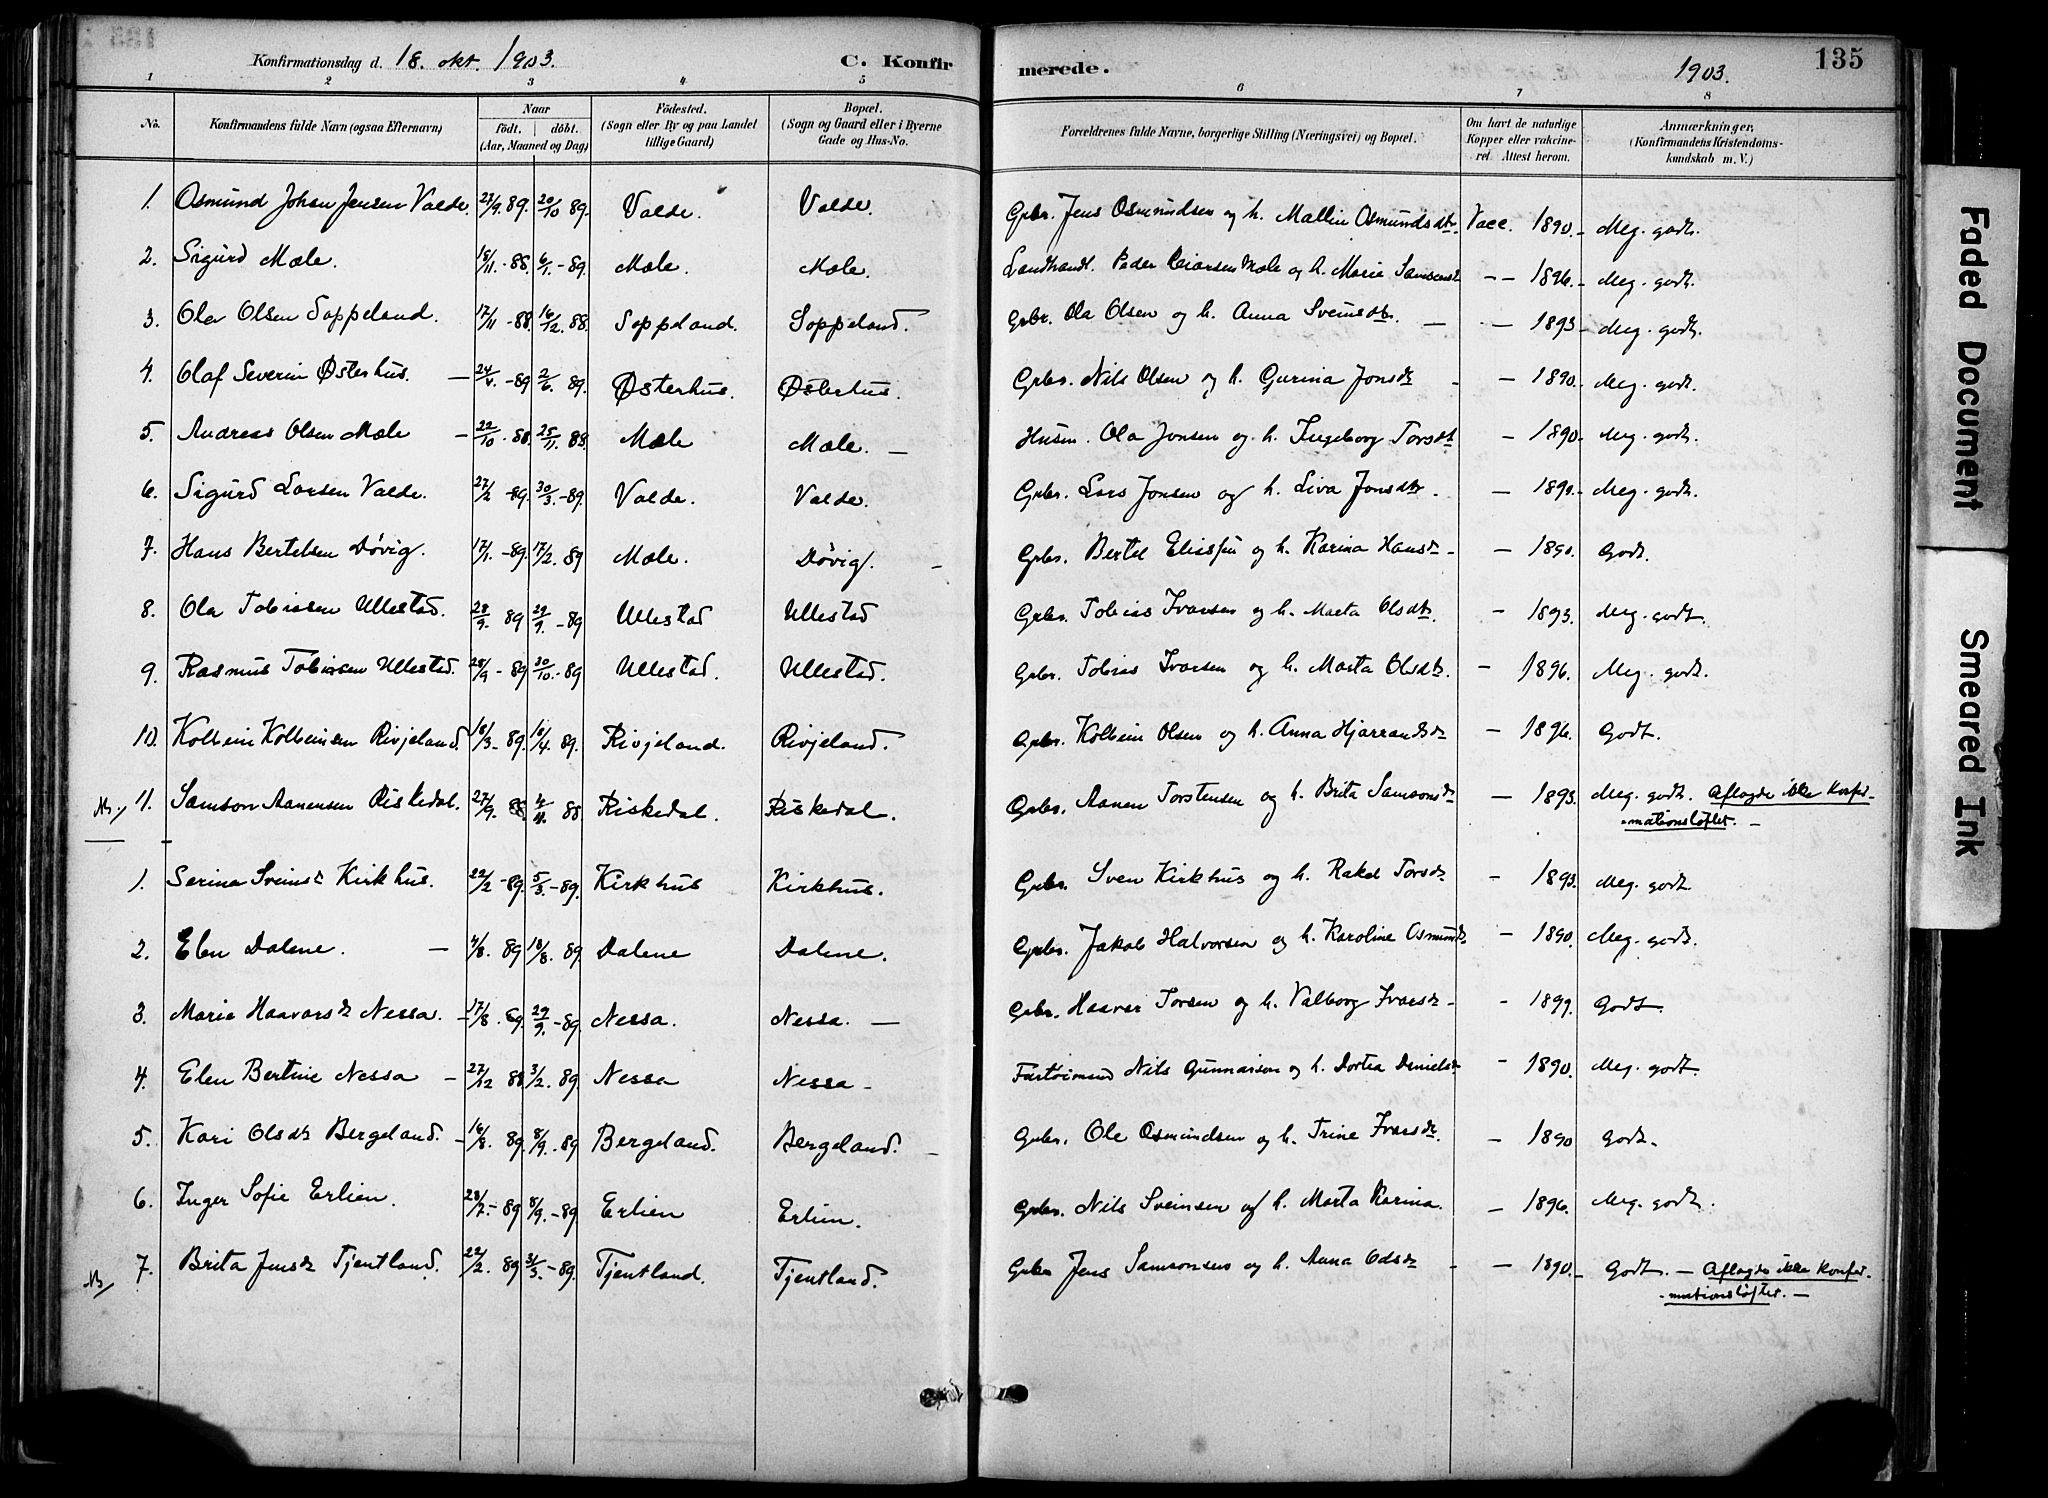 Konfirmationsdag d. 18. okt. 1903. C. Konfirmerede. 1903. 135
1 2 3 4 5 6 7 8
No. Konfirmandens fulde Navn (ogsaa Efternavn) Naar født. døbt. (Aar, Maaned og Dag) Fødested. (Sogn eller By og paa Landet tillige Gaard) Bopæl. (Sogn og Gaard eller i Byerne Gade og Hus-No. Forældrenes fulde Navne, borgerlige Stilling (Næringsvei) og Bopæl. Om havt de naturlige Kopper eller vakcineret. Attest herom. Anmærkninger, (Konfirmandens Kristendomskundskab m. V.)
1. Osmund Johan Jensen Valde. 27/9. 89. 20/10 89. Valde. Valde. Gbr. Jens Osmundsen og h. Mallin Osmundsdtr. Vacc. 1890. - Meg. godt.
2. Sigurd Mæle. 18/11. - 88. 6/1. - 89. Mæle. Mæle. Landhandl. Peder Mæle og h. Marie - - 1896. - Meg. godt.
3. Ola Olsen Soppeland. 17/11 - 88. 16/12. 88. Soppeland. Soppeland. Gbr. Ola Olsen og h. Anna Sveinsdtr. - - 1893 - Meg. godt.
4. Olaf Severin Østerhus. - 24/4. - 89 2/6. 89. Østerhus. Østerhus. Gbr. Nils Olsen og h. Gurina Jonsdtr - - 1890. Meg. godt.
5. Andreas Olsen Mæle - 22/10 - 88. 25/11. 88. Mæle Mæle. - Husm. Ola Jonsen og h. Ingeborg Torsdtr - 1890. Meg. godt.
6. Sigurd Larsen Valde. 27/2 - 89. 30/3. - 89. Valde. Valde. Gbr. Lars Jonsen og h. Liva Jonsdtr. - 1890. - Meg. godt.
7. Hans Bertelsen Døvig. 17/1. - 89. 17/2. 89 Mæle. Døvig. - Gbr. Bertel og h. Karina Hansdtr - - 1890. Godt.
8. Ola Tobiasen Ullestad. 28/9. 89 29/9. - 89 Ullestad Ullestad Gbr. Tobias Ivarsen og h. Marta Olsdtr. - 1893. Meg. godt.
9. Rasmus Tobiasen Ullestad. 28/9 - 89 20/10. - 89 Ullestad. Ullestad. Gbr. Tobias Ivarsen og h. Marta Olsdtr. - 1896. Meg. godt.
10. Kolbein Kolbeinsen Rivjeland. 18/3 - 89. 18/4. 89. Rivjeland. Rivjeland. Gbr. Kolbein Olsen og h. Anna Hjarrandsdtr - 1896. Godt.
Nb 11. Samson Aanensen Riskedal. 27/9. 88. 4/11. 88 Riskedal. Riskedal. Gbr. Aanen Torstensen og h. Brita Samsonsdtr - 1893. Meg. godt. Aflagde ikke Konfir-
mationsløftet. -
1. Serina Sveinsdtr Kirkhus. 22/2 - 89. 5/3. - 89. Kirkhus Kirkhus. Gbr. Sven Kirkhus og h. Rakel Torsdtr - 1893. Meg. godt.
2. Elen Dalene. - 4/8. 89 18/8. 89 Dalene Dalene. Gbr. Jakob Halvorsen og h. Karoline Osmundsdtr - 1890. Meg. godt.
3. Marie Haavarsdtr Nessa. - 17/8. 89. 29/9. - 89. Nessa. Nessa. - Gbr. Haavar Torsen og h. Valborg Ivarsdtr - - 1899. Godt.
4. Elen Bertine Nessa - 27/12 88 3/2. 89 Nessa Nessa - Nils Gunnarson og h. Dortea Danielsdtr - 1890. Meg. godt.
5. Kari Olsdtr Bergeland. - 16/8. 89. 8/9. - 89 Bergeland. Bergeland. - Gbr. Ole Osmundsen og h. Trine Ivarsdtr. - 1890 Godt.
6. Inger Sofie Erlien. 28/7. - 89 8/9. - 89 Erlien Erlien. Gbr. Nils Sveinsen og h. Marta Karina. - 1896. Meg. godt.
Nb 7. Brita Jensdtr Tjentland. 22/2. 89 31/3. - 89. Tjentland. Tjentland. Gbr Jens Samsonsen og h. Anna Odsdtr - - 1890. - Godt. - Aflagde ikke Konfir-
mationsløftet. -
Faded Document
Smeared Ink